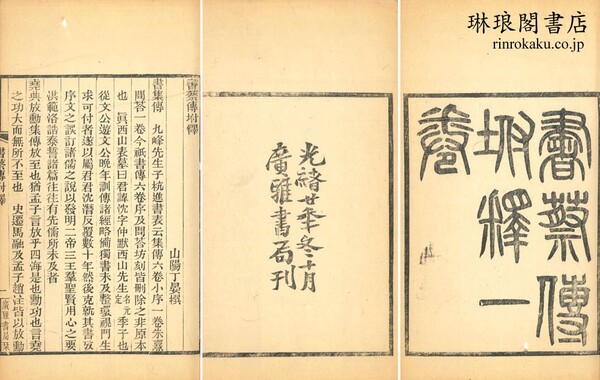 琳琅閣書店
rinrokaku.co.jp
書蔡傳
坿釋一
卷
光緒廿秊冬十月
廣雅書局刊
書蔡傳坿釋
山陽丁晏撰
書集傳 九峰先生子杭進書表云集傳六卷小序一卷朱熹
問答一卷今祇書傳六卷序及問答坊刻皆刪除之非原本
也 眞西山表墓曰君諱沈字仲默西山先生名元定季子也
從文公遊文公晚年訓傳諸經略備獨書未及整視門生
求可付者遂以屬君君沈潛反覆數十年然後克就其書攷
序文之誤訂諸儒之說以發明二帝三王羣聖賢用心之要
洪範洛誥泰誓諸篇往往有先儒所未及者
堯典放勳集傳放至也猶孟子言放乎四海是也勳功也言堯
之功大而無所不至也 史遷馬融及孟子趙注皆以放勳
書蔡傳坿釋
廣雅書局栞